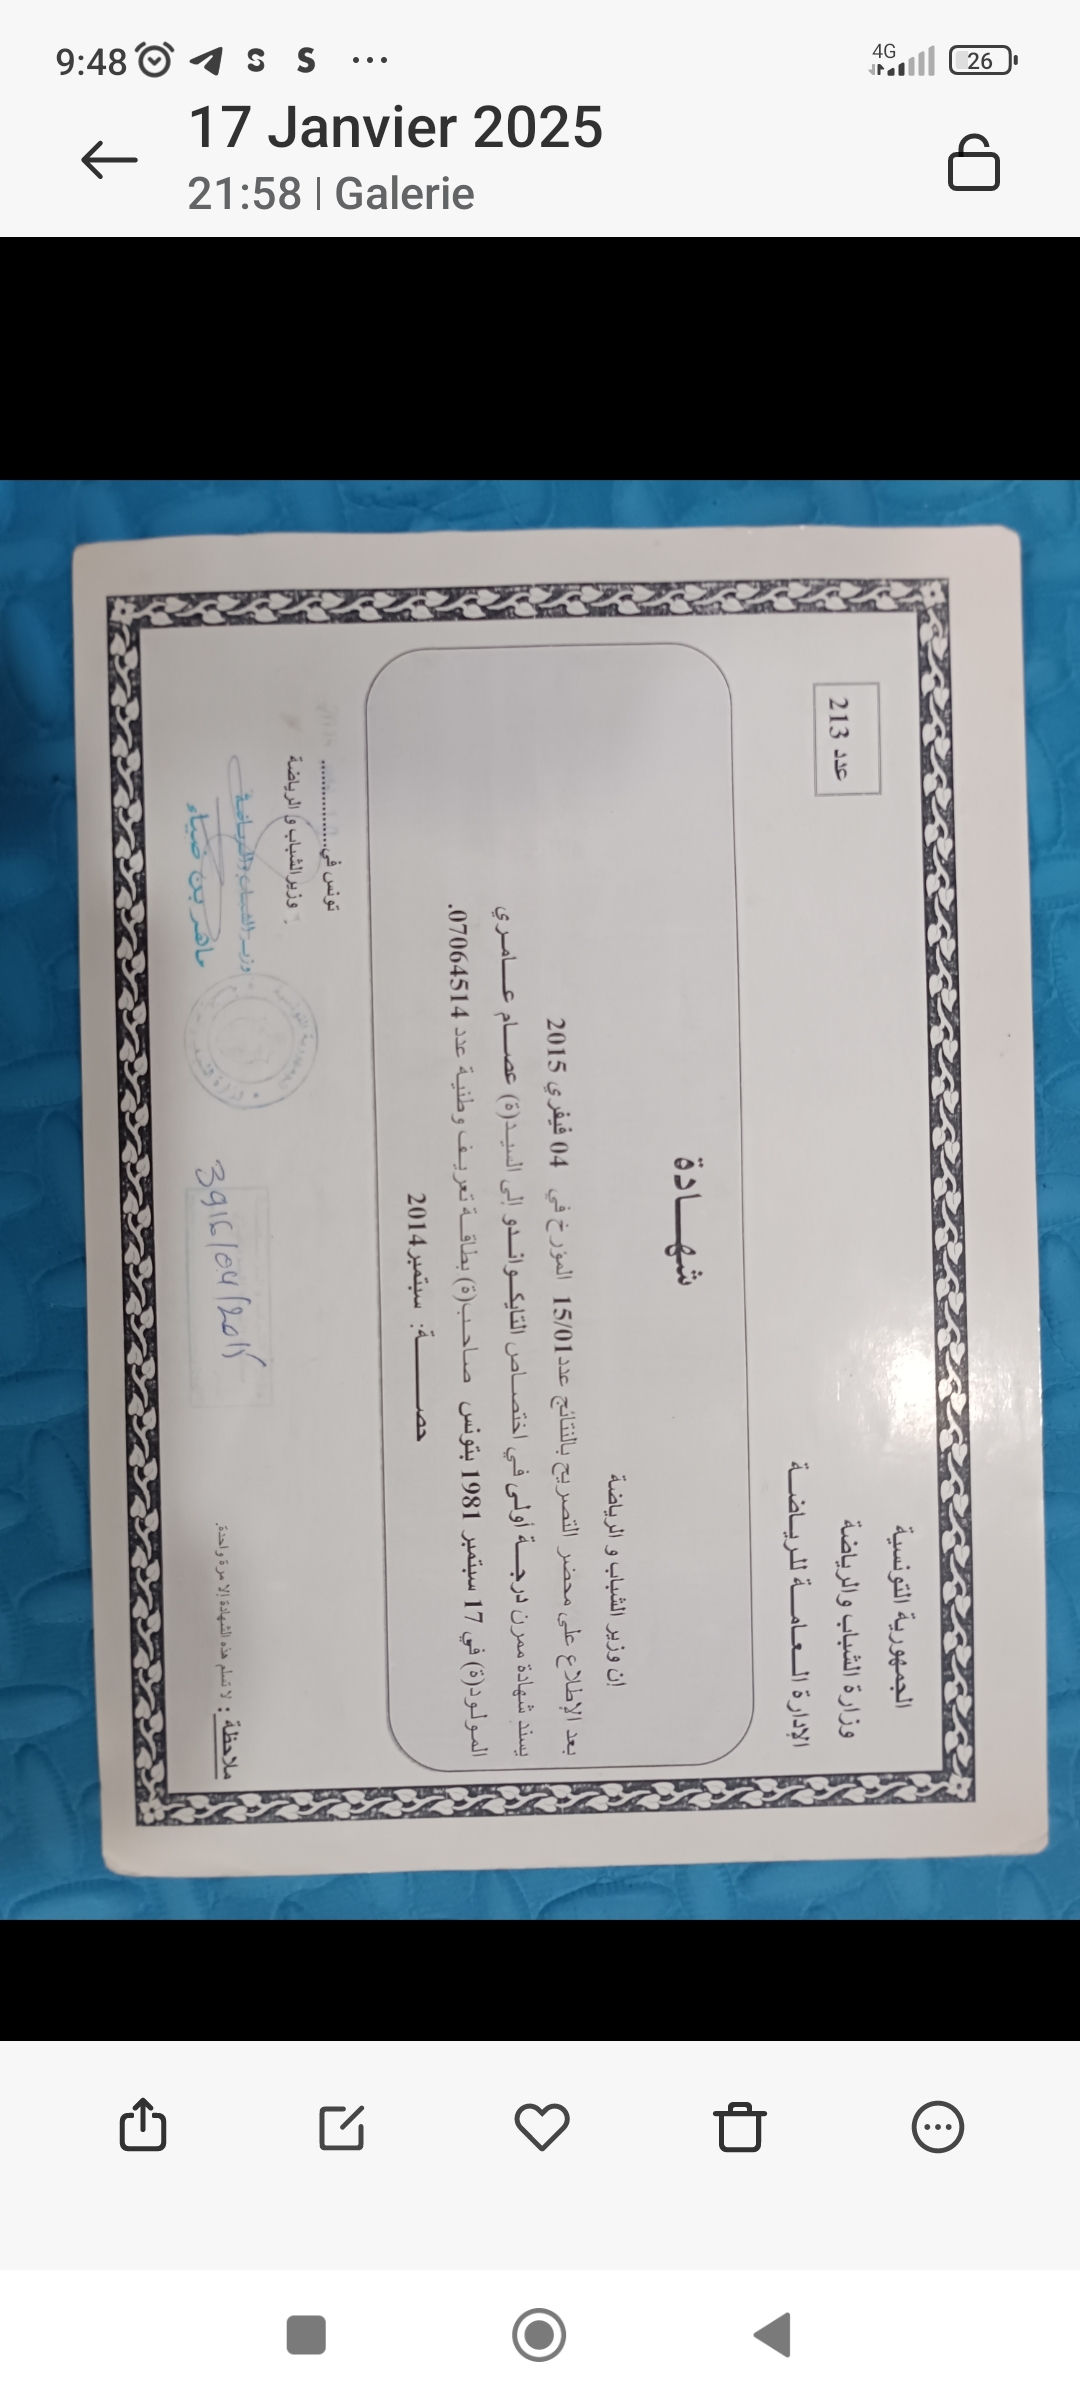 9:48 S S ...
4G
26
17 Janvier 2025
21:58 | Galerie
الجمهورية التونسية
وزارة الشباب والرياضة
الإدارة العامة للرياضة
عدد 213
شهادة
إن وزير الشباب و الرياضة
بعد الإطلاع على محضر التصريح بالنتائج عدد 15/01 المؤرخ في 04 فيفري 2015
يسند شهادة ممرن درجة أولى في اختصاص التايكواندو إلى السيد(ة) عصام عامري
المولود(ة) في 17 سبتمبر 1981 بتونس صاحب(ة) بطاقة تعريف وطنية عدد 07064514.
حصة: سبتمبر 2014
تونس في................
وزير الشباب و الرياضة
وزير الشباب والرياضة
ماهر بن ضياء
3916/04/2015
ملاحظة : لا تسلم هذه الشهادة إلا مرة واحدة.